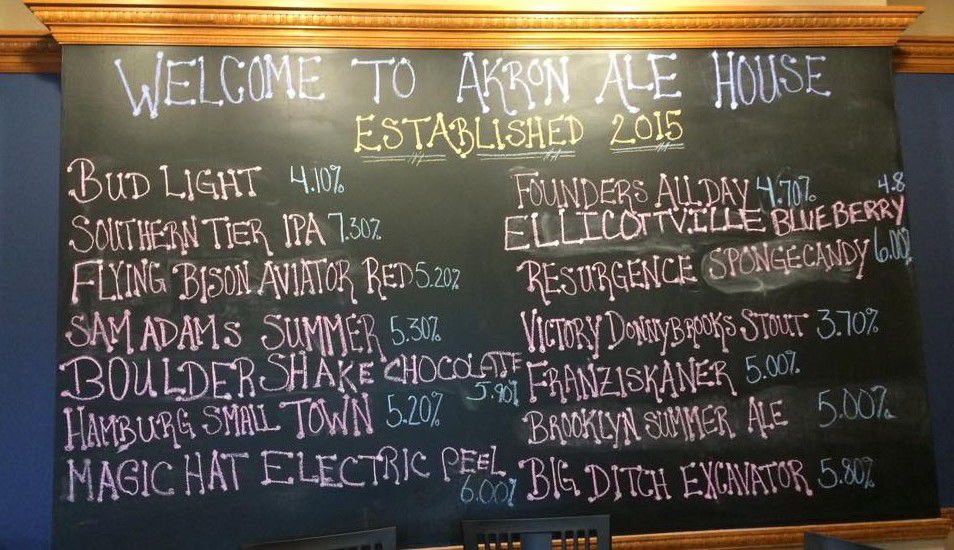 WELCOME TO AKRON ALE HOUSE
ESTABLISHED 2015
BUD LIGHT 4.10%
SOUTHERN TIER IPA 7.30%
FLYING BISON AVIATOR RED 5.20%
SAM ADAMS SUMMER 5.30%
BOULDER SHAKE CHOCOLATE 5.90%
HAMBURG SMALL TOWN 5.20%
MAGIC HAT ELECTRIC PEEL 6.00%
FOUNDERS ALL DAY 4.70%
ELLICOTTVILLE BLUEBERRY 4.8
RESURGENCE SPONGECANDY 6.00%
VICTORY DONNYBROOKS STOUT 3.70%
FRANZISKANER 5.00%
BROOKLYN SUMMER ALE 5.00%
BIG DITCH EXCAVATOR 5.80%